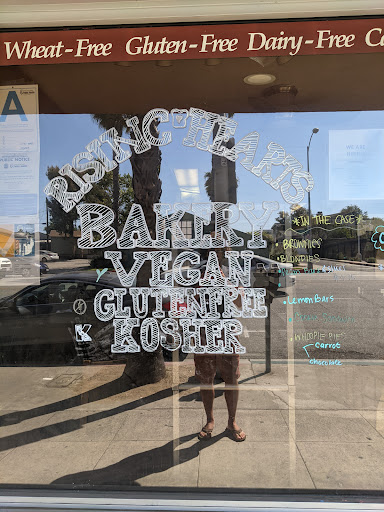 Wheat-Free Gluten-Free Dairy-Free
A
RISING HEARTS
BAKERY
VEGAN
GLUTENFREE
K KOSHER
*IN THE CASE*
BROWNIES
•BLONDIES
•LEMON BARS
•WHOOPIE PIES
carrot
chocolate